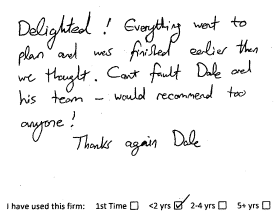 Delighted! Everything went to
plan and was finished earlier then
we thought. Cant fault Dale and
his team – would recommend too
anyone!
Thanks again Dale
I have used this firm: 1st Time ☐ <2 yrs ☑ 2-4 yrs ☐ 5+ yrs ☐